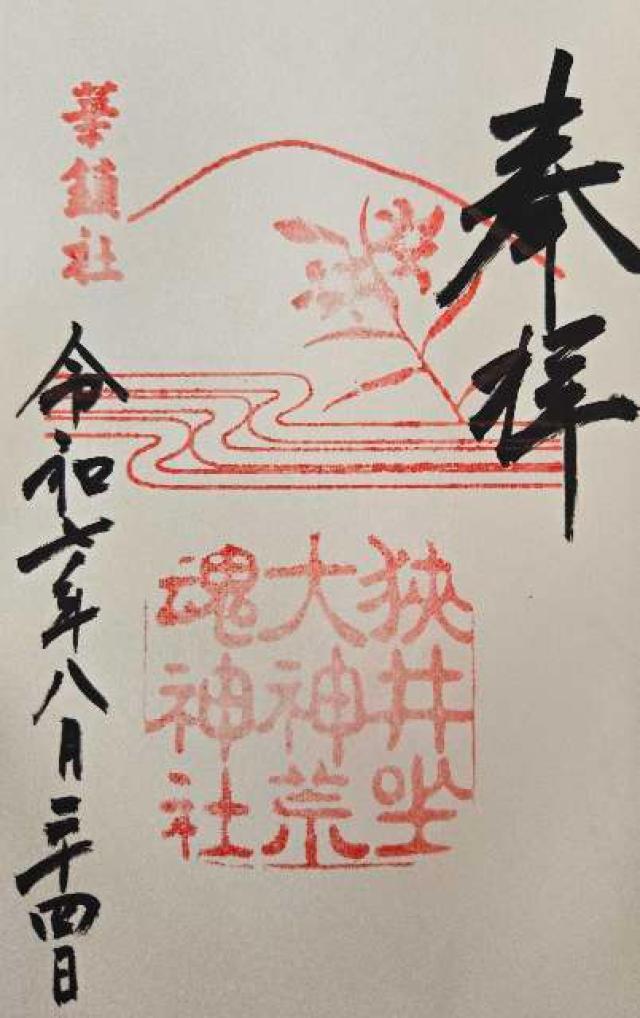 奉拝
狭井坐
大神荒
魂神社
華鎮社
令和七年八月二十四日